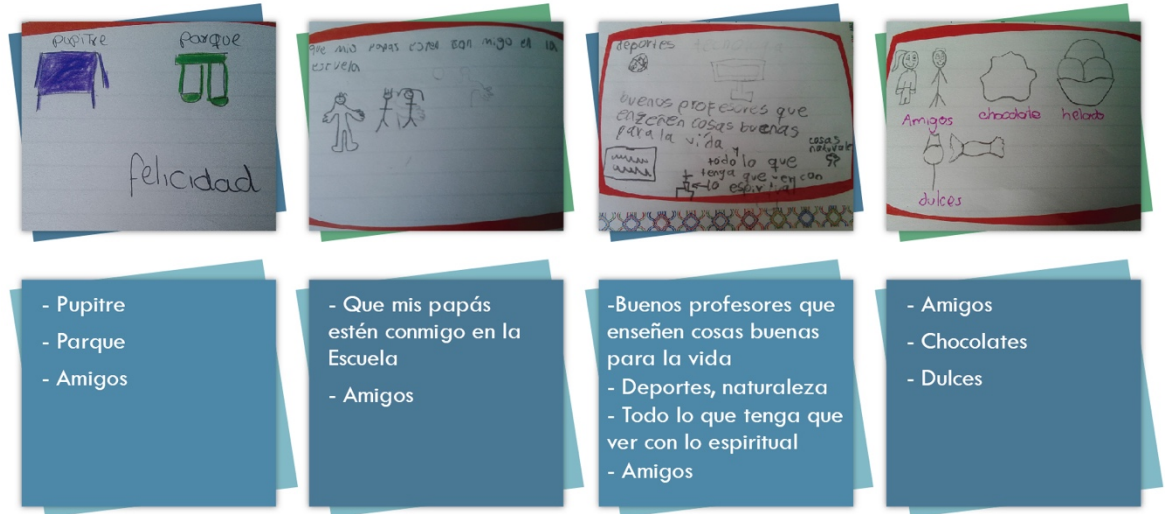 pupitre parque
felicidad
que mis papas esten con migo en la
escuela
deportes tecno
buenos profesores que
enzeñen cosas buenas
para la vida
y cosas
todo lo que
tenga que ver con
lo espiritual
Amigos chocolate helado
dulces
- Pupitre
- Parque
- Amigos
- Que mis papás
estén conmigo en la
Escuela
- Amigos
-Buenos profesores que
enseñen cosas buenas
para la vida
- Deportes, naturaleza
- Todo lo que tenga que
ver con lo espiritual
- Amigos
- Amigos
- Chocolates
- Dulces